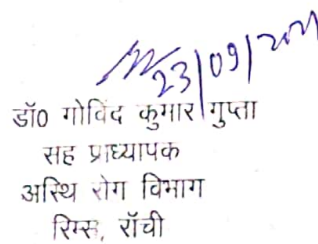 23/09/2021
डॉ0 गोविंद कुमार गुप्ता
सह प्राध्यापक
अस्थि रोग विभाग
रिम्स, राँची